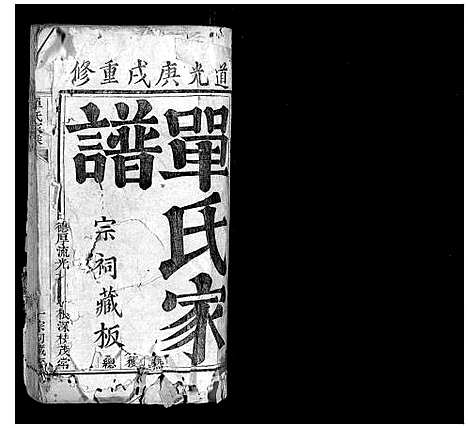 道光庚戌重修
單氏家
譜
宗祠藏板
德厚流光
根深枝茂